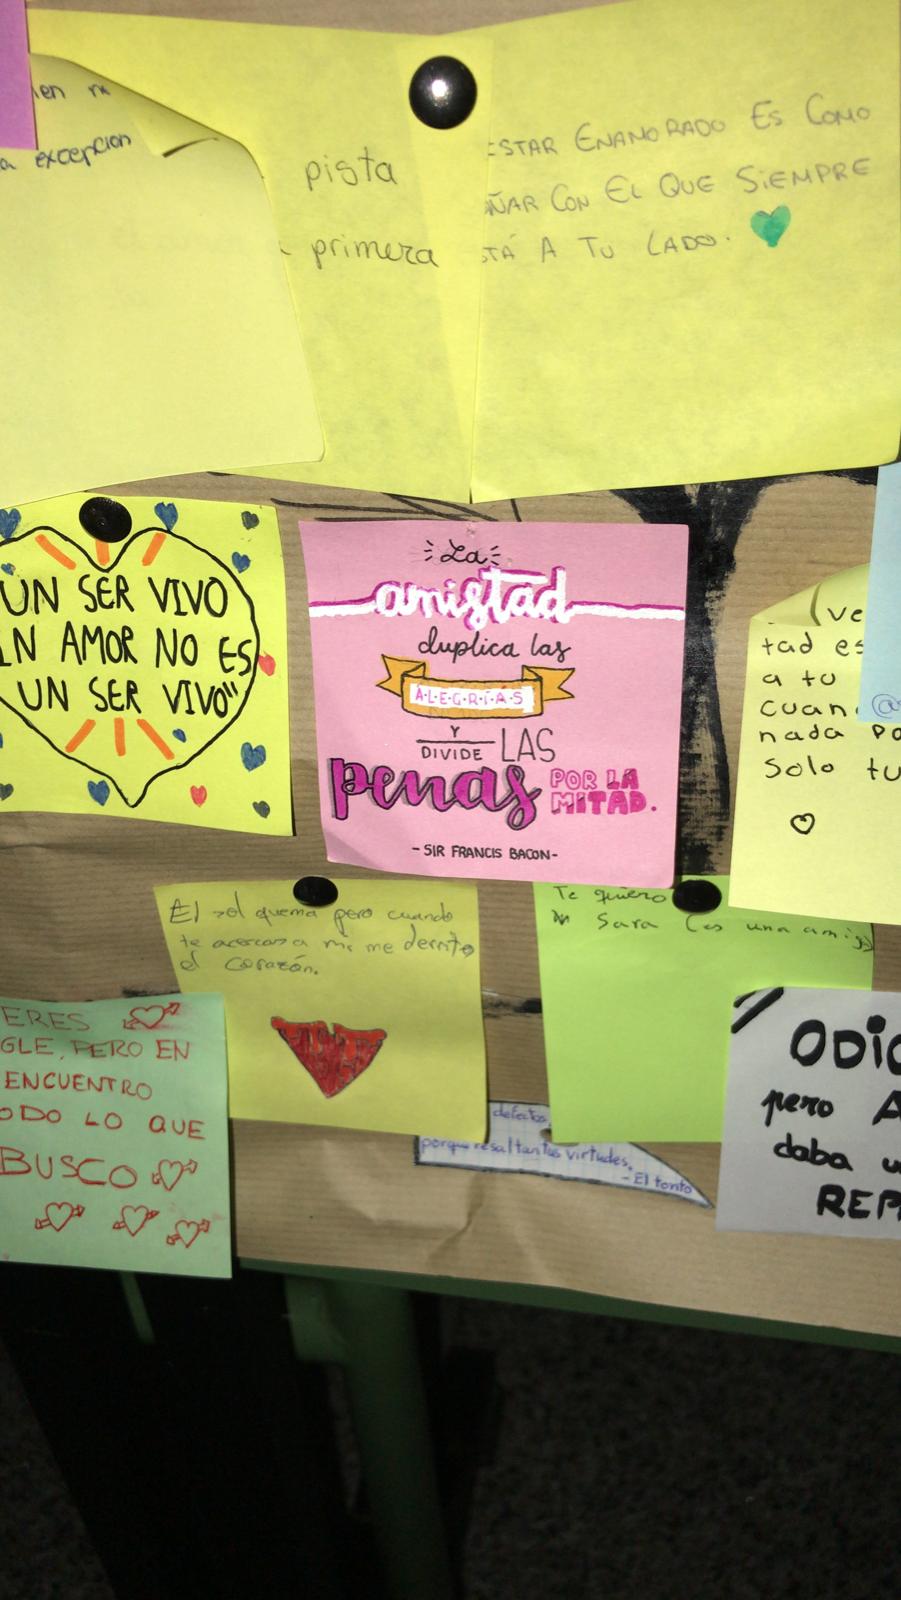 en
a excepcion
pista
primera
ESTAR ENAMORADO ES COMO
ÑAR CON EL QUE SIEMPRE
STÁ A TU LADO.
UN SER VIVO
IN AMOR NO ES
UN SER VIVO"
La
amistad
duplica las
A·L·E·G·R·Í·A·S
Y
DIVIDE LAS
penas POR LA
MITAD.
- SIR FRANCIS BACON-
ve
tad es
a tu
cuan
nada po
solo tu
El sol quema pero cuando
te acercas a mi me derrito
el corazón.
Te quiero
Sara (es una amiga)
ERES
GLE, PERO EN
ENCUENTRO
ODO LO QUE
BUSCO
defectos
porque resaltan tus virtudes.
- El tonto
ODIO
pero A
daba u
REP